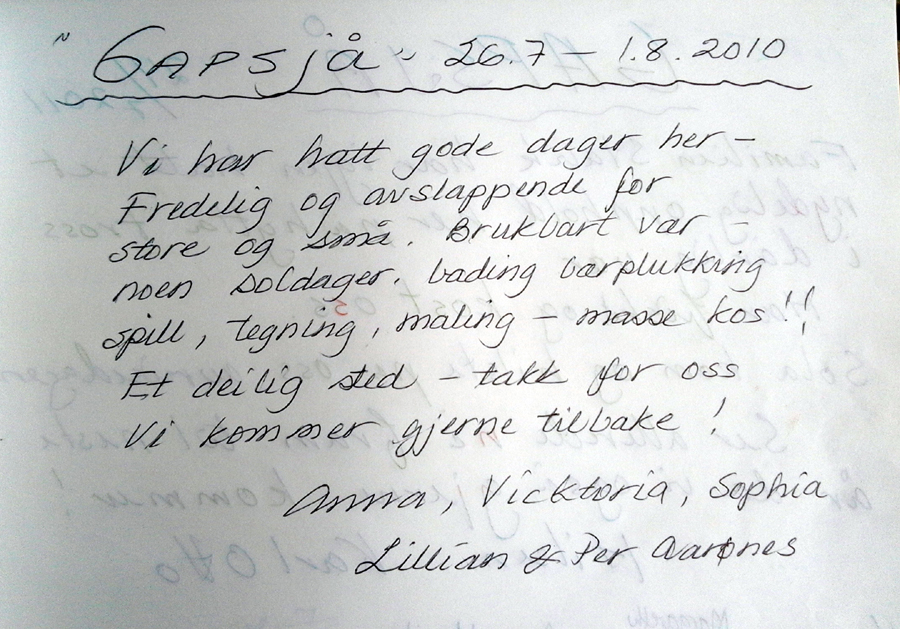 "GAPSjå" 26.7 - 1.8.2010
Vi har hatt gode dager her -
Fredelig og avslappende for
store og små. Brukbart vær -
noen soldager. bading bærplukking
spill, tegning, maling - masse kos!!
Et deilig sted - takk for oss
Vi kommer gjerne tilbake!
Anna, Vicktoria, Sophia
Lillian & Per